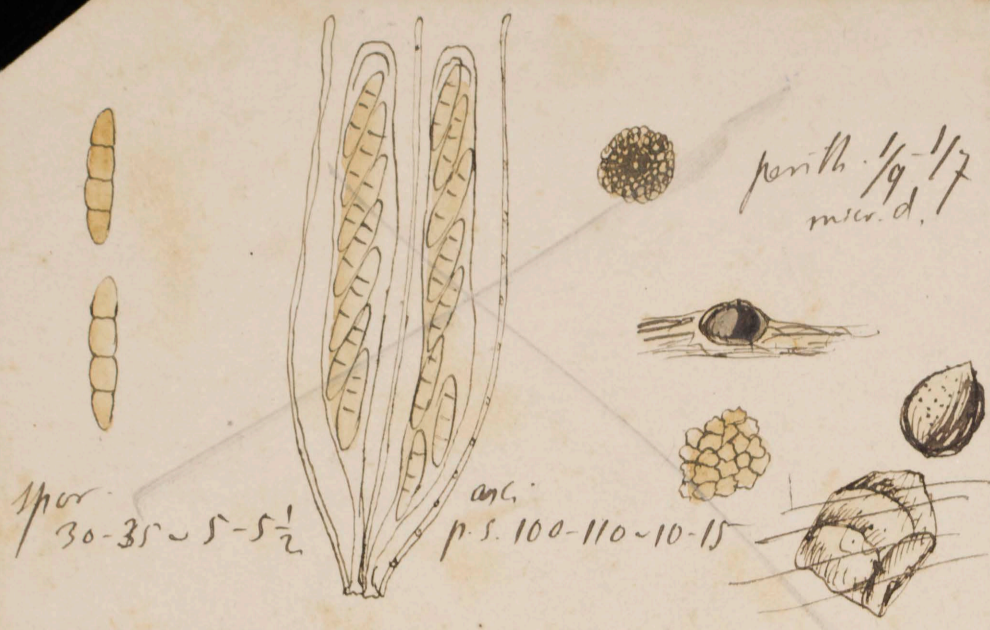 perith. 1/9-1/7
micr. d.
spor.
30-35 ~ 5-5½
asci.
p.s. 100-110 ~ 10-15